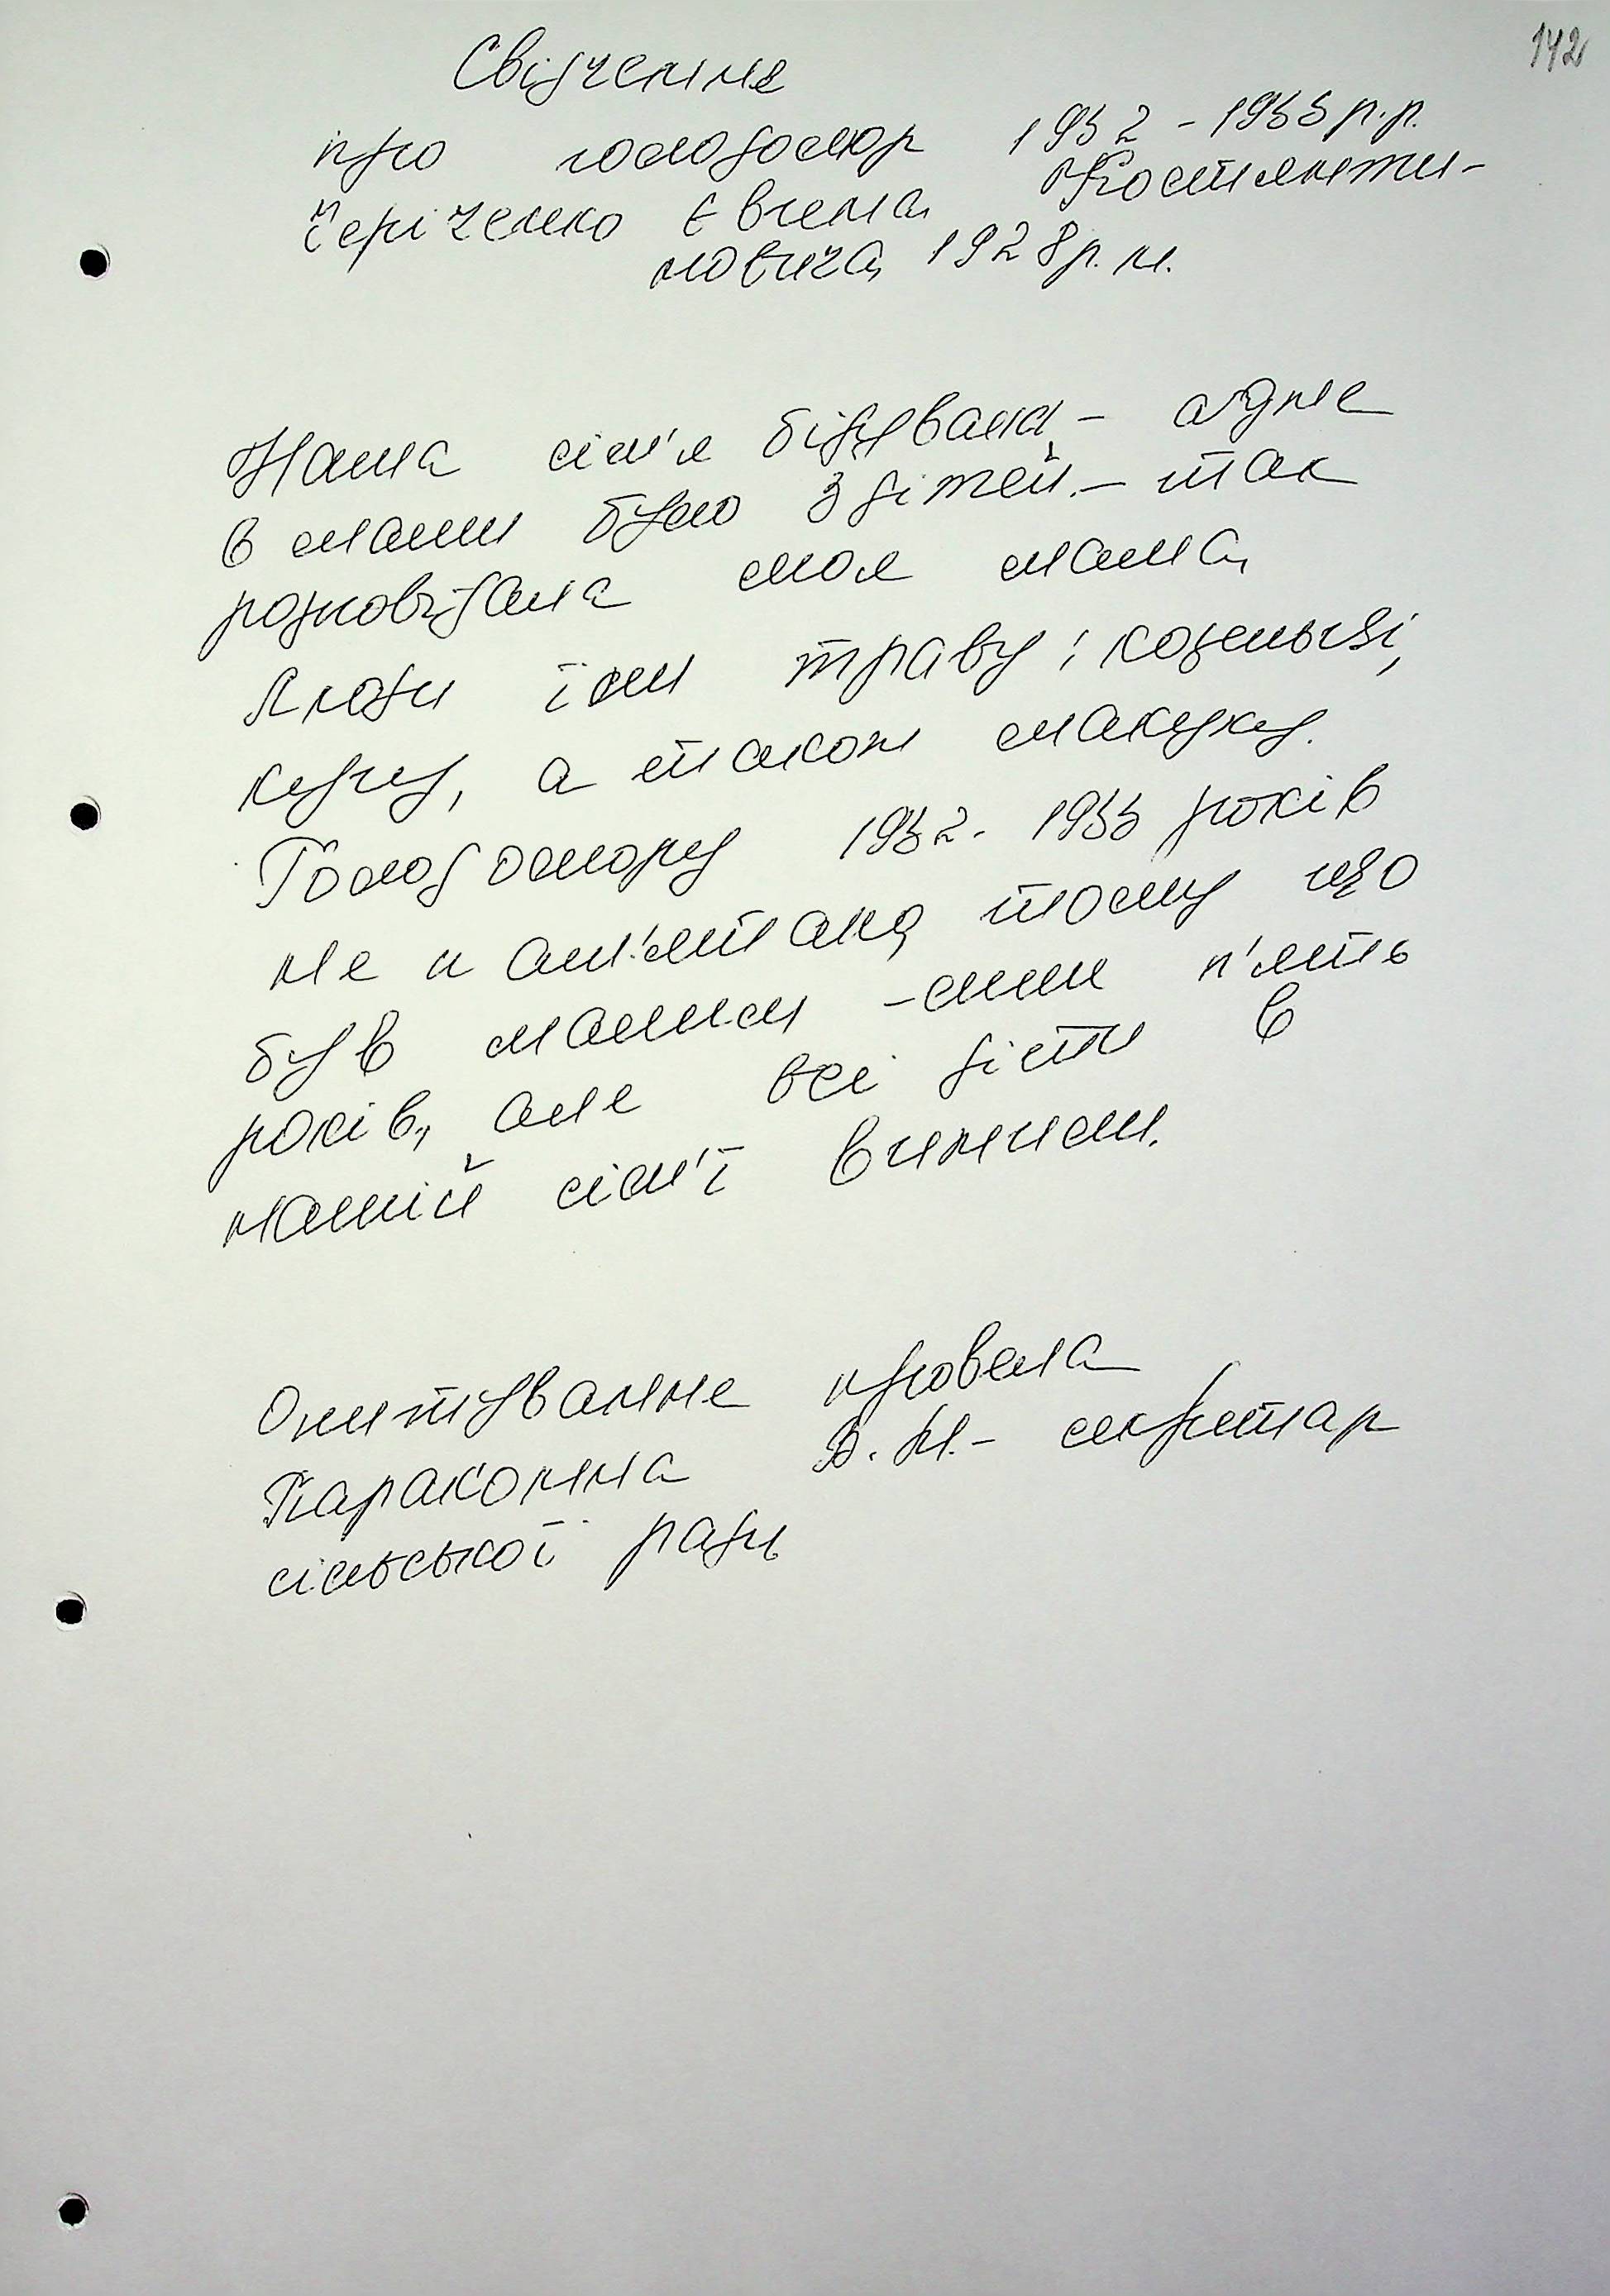 142
Свідчення
про голодомор 1932-1933 р.р.
Євгена Костянти-
новича 1928 р. н.
Наша сім'я бідувала - адже
в мами було 3 дітей - так
розповідала моя мама,
Люди їли траву і
кугу, а також макуху.
Голодомору 1932-1933 років
не пам'ятаю, тому що
був малим - мені п'ять
років, але всі діти в
нашій сім'ї вижили.
Опитування провела
Параконна В. Н. - секретар
сільської ради